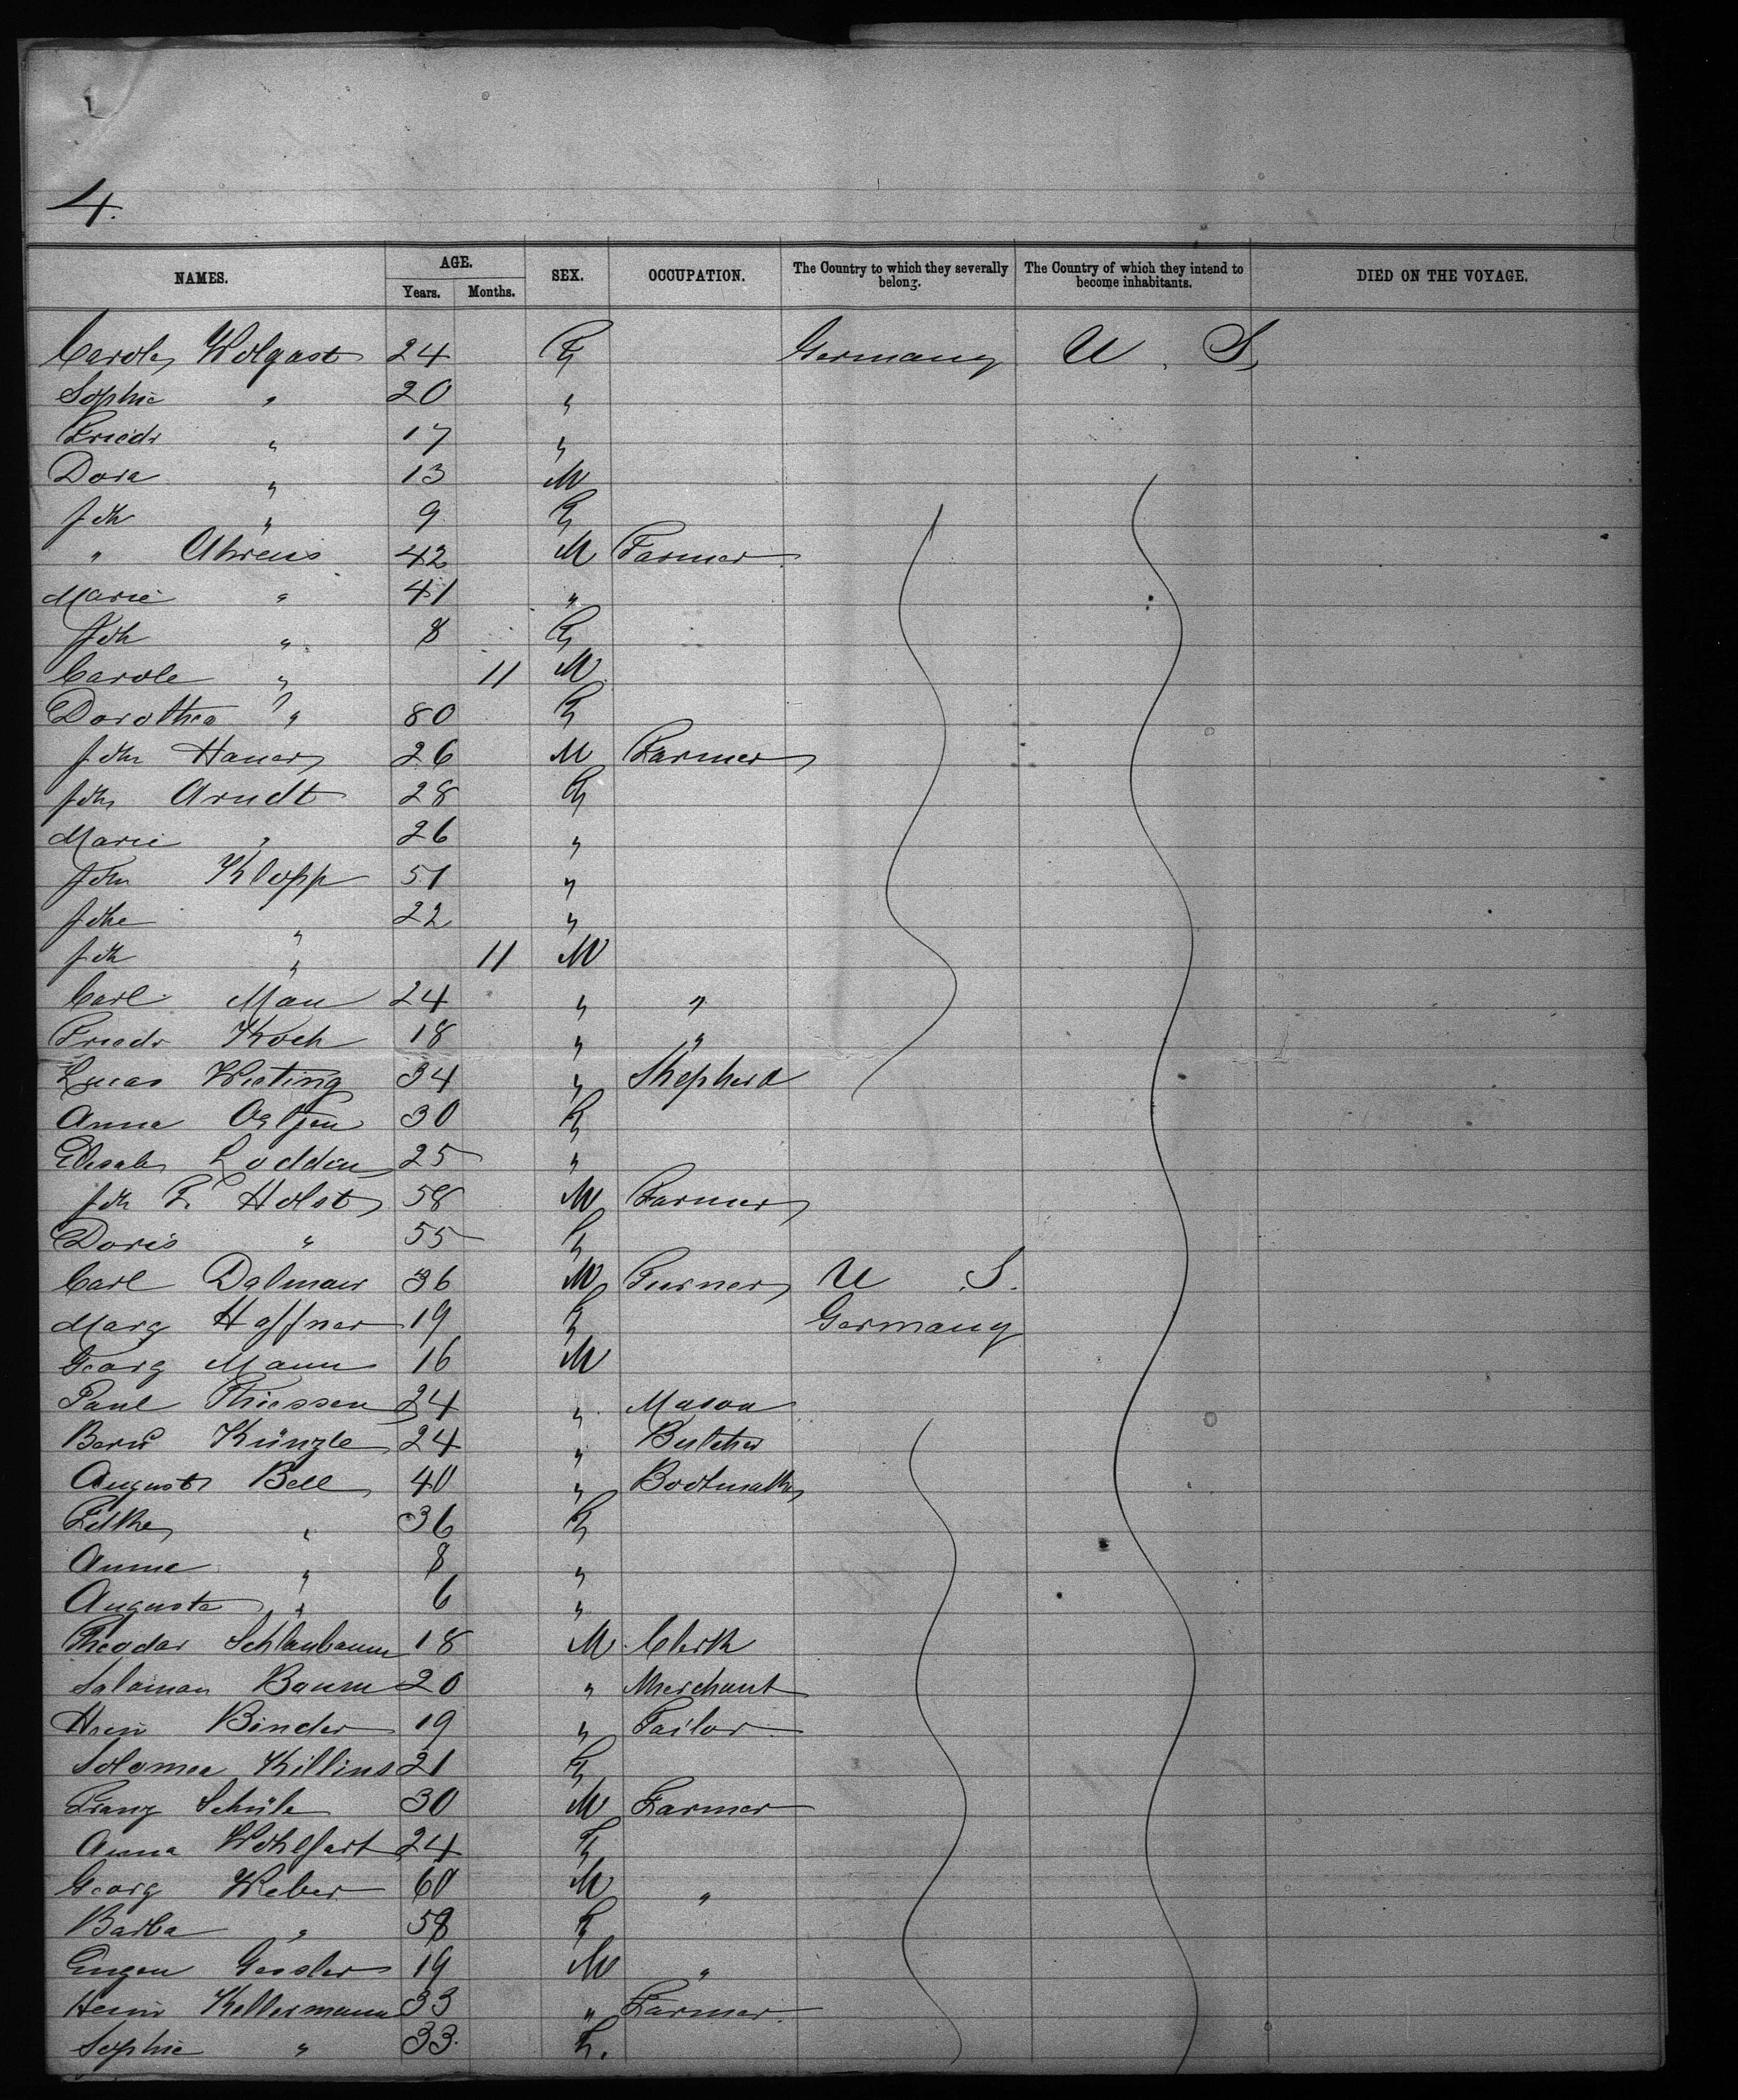 4.
NAMES. AGE. Years. Months. SEX. OCCUPATION. The Country to which they severally belong. The Country of which they intend to become inhabitants. DIED ON THE VOYAGE.
Carole Wolgast 24 F Germany U. S.
Sophie " 20 "
Friedr " 17 "
Dora " 13 M
Joh " 9 F
" Ahrens 42 M Farmer
Marie " 41 "
Joh " 8 F
Carole " 11 M
Dorothea " 80 F
Joh Hauer 26 M Farmer
Joh Arndt 28 F
Marie " 26 "
Joh Klopp 51 "
Johe " 22 "
Joh " 11 M
Carl Mau 24 " "
Friedr Koch 18 " "
Lucas Wieting 34 " Shepherd
Anna 30 F
Elisab Loddin 25 "
Joh F Holst 58 M Farmer
Doris " 55 F
Carl Dalmair 36 M Turner U S.
Marg Haffner 19 F Germany
Georg Mann 16 M
Paul Thiessen 24 " Mason
Bernd Künzle 24 " Butcher
August Bell 40 " Bootmaker
36 F
Anna " 8 "
Augusta " 6 "
Theodor Schlaubaum 18 M Clerk
Salaman Baum 20 " Merchant
Hein Binder 19 " Tailor
Solomea Killins 21 F
Franz Schüle 30 M Farmer
Anna Wohlfart 24 F
Georg Weber 60 M "
Barba " 58 F
Eugen Gessler 19 M "
Heinr Kellermann 33 " Farmer
Sophie " 33. F.